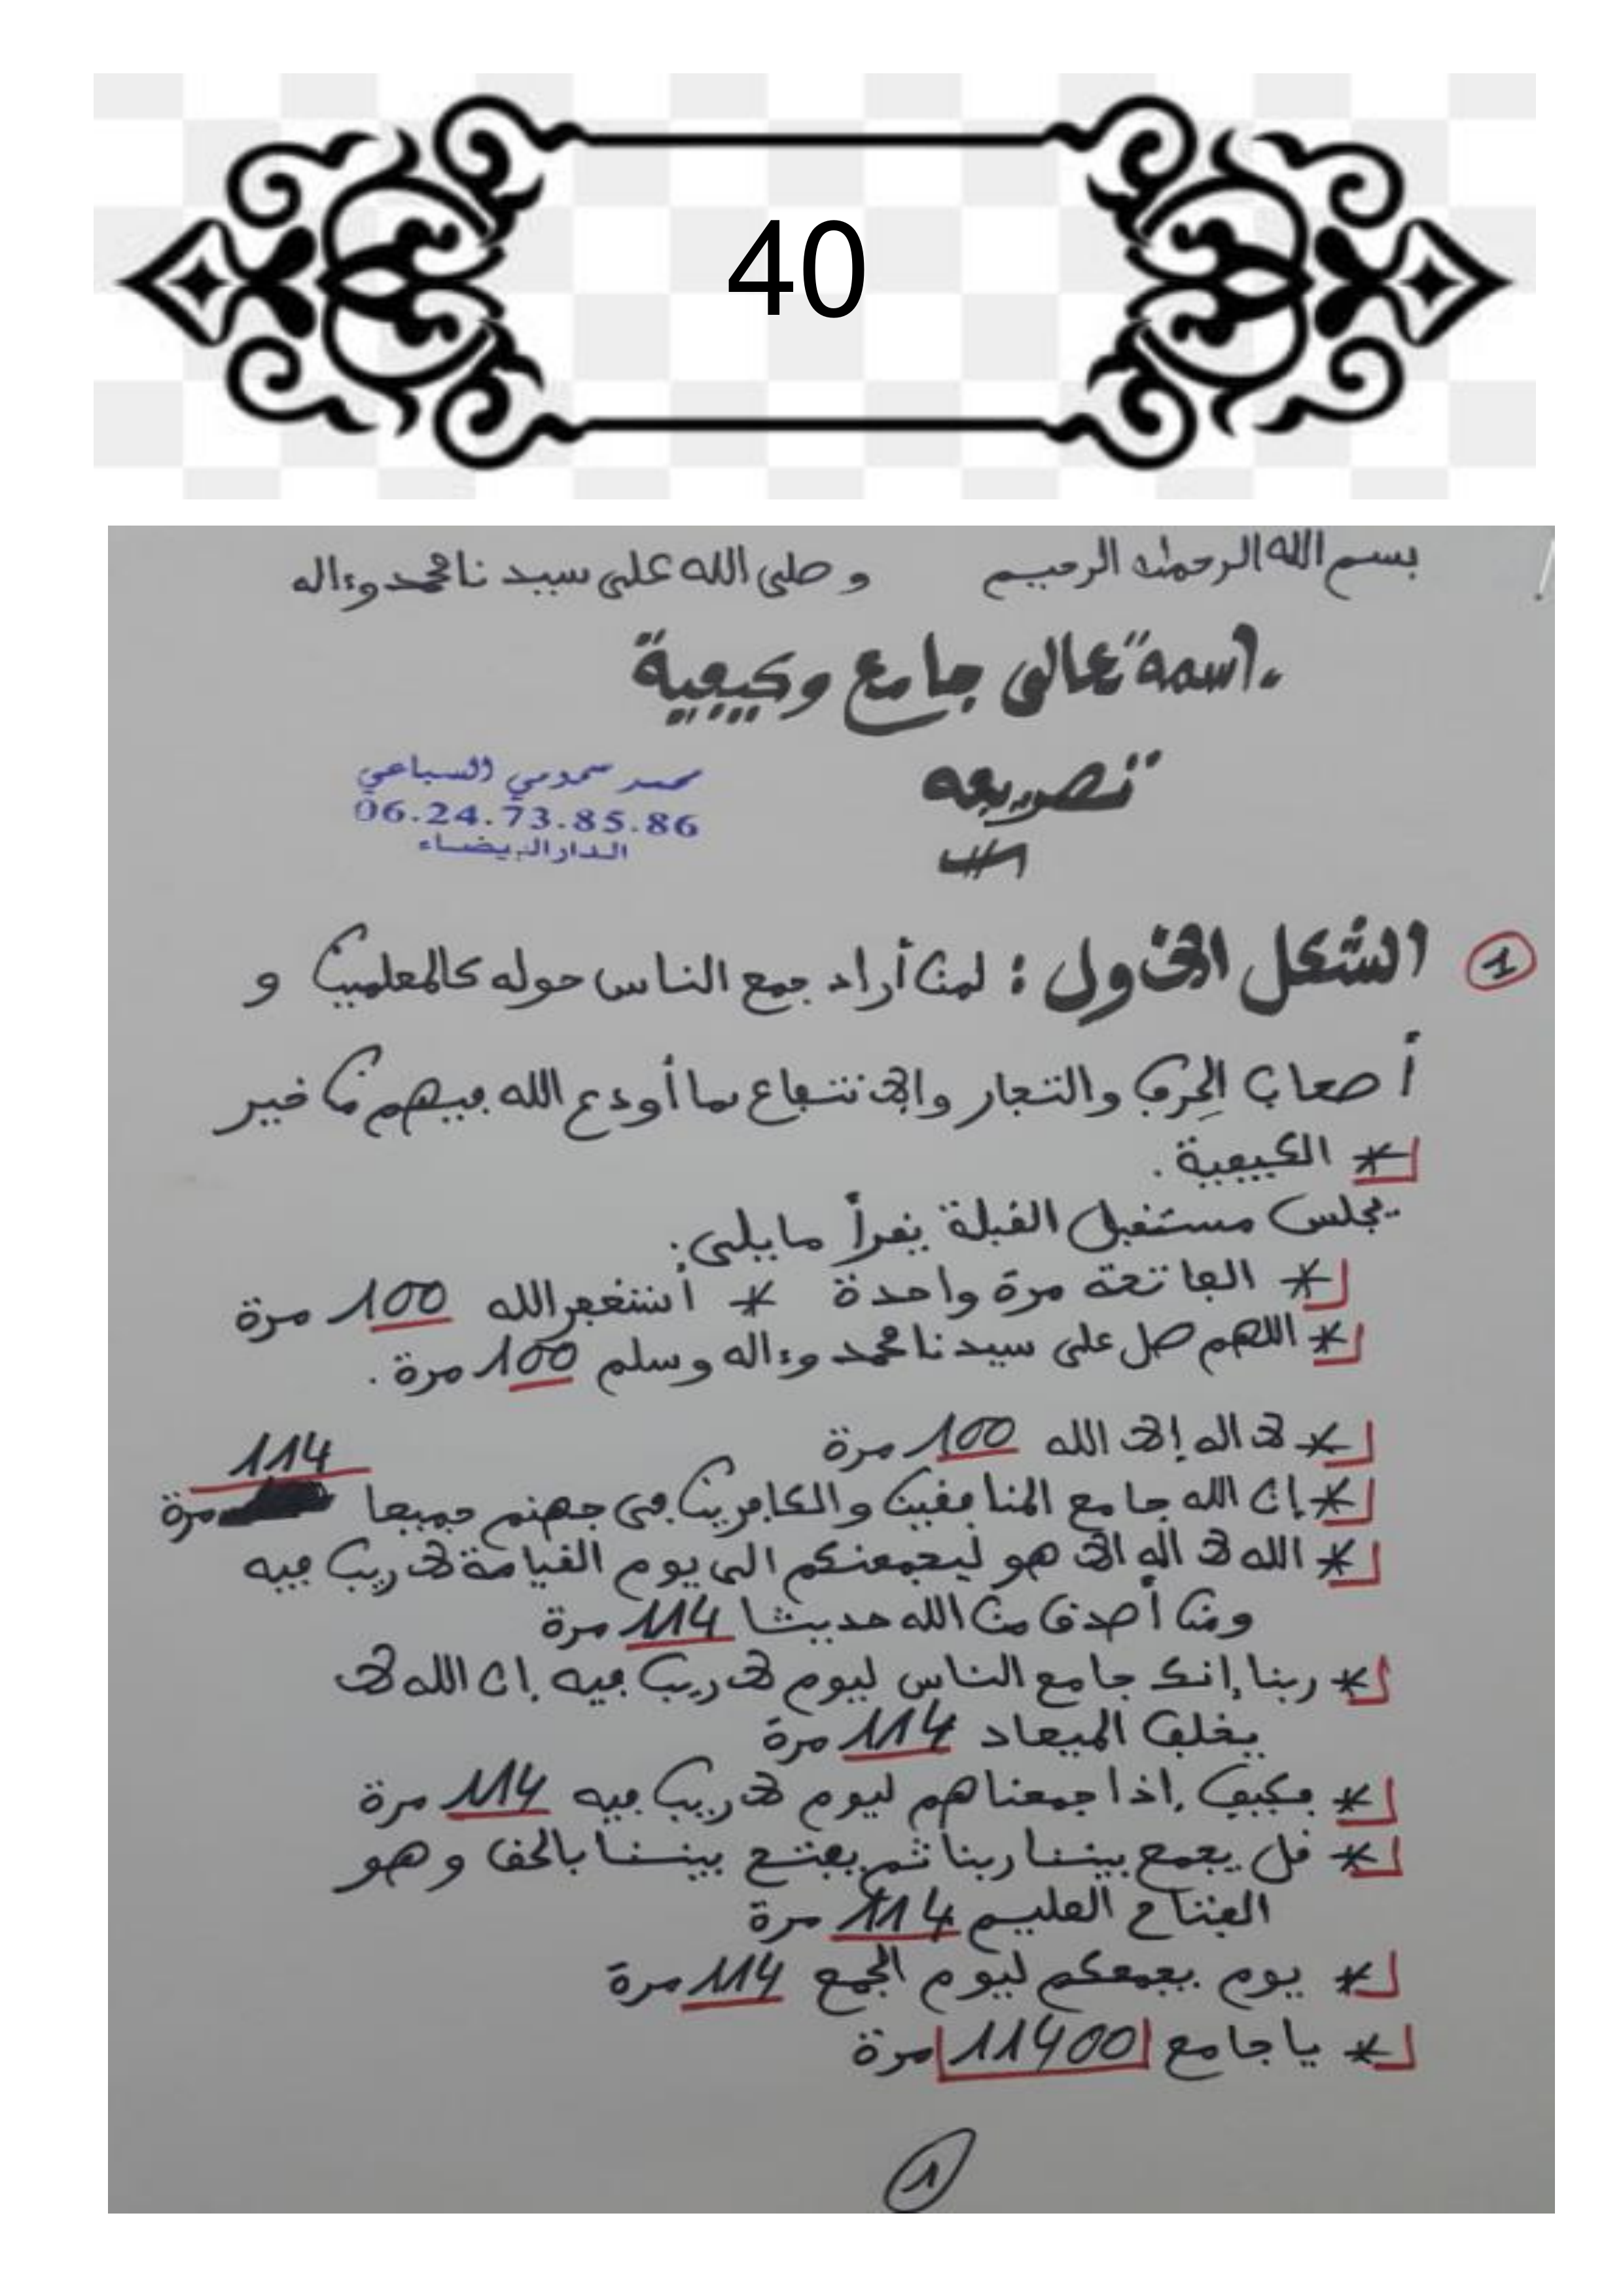 40
بسم الله الرحمن الرحيم وصلى الله على سيدنا محمد وءاله
اسمه تعالى جامع وكيفية
تصريفه
محمد سمومي السباعي
06.24.73.85.86
الدار البيضاء
1 الشكل الأول : لمن أراد جمع الناس حوله كالمعلمين و
أصحاب الحِرف والتجار والانتفاع بما أودع الله فيهم من خير
* الكيفية .
يجلس مستقبل القبلة يقرأ ما يلي :
* الفاتحة مرة واحدة * أستغفر الله 100 مرة
* اللهم صل على سيدنا محمد وءاله وسلم 100 مرة .
* لا اله إلا الله 100 مرة
114
* إن الله جامع المنافقين والكافرين في جهنم جميعا مرة
* الله لا اله الا هو ليجمعنكم الى يوم القيامة لا ريب فيه
ومن أصدق من الله حديثا 114 مرة
* ربنا إنك جامع الناس ليوم لا ريب فيه إن الله لا
يخلف الميعاد 114 مرة
* فكيف إذا جمعناهم ليوم لا ريب فيه 114 مرة
* قل يجمع بيننا ربنا ثم يفتح بيننا بالحق وهو
الفتاح العليم 114 مرة
* يوم يجمعكم ليوم الجمع 114 مرة
* يا جامع 11400 مرة
1